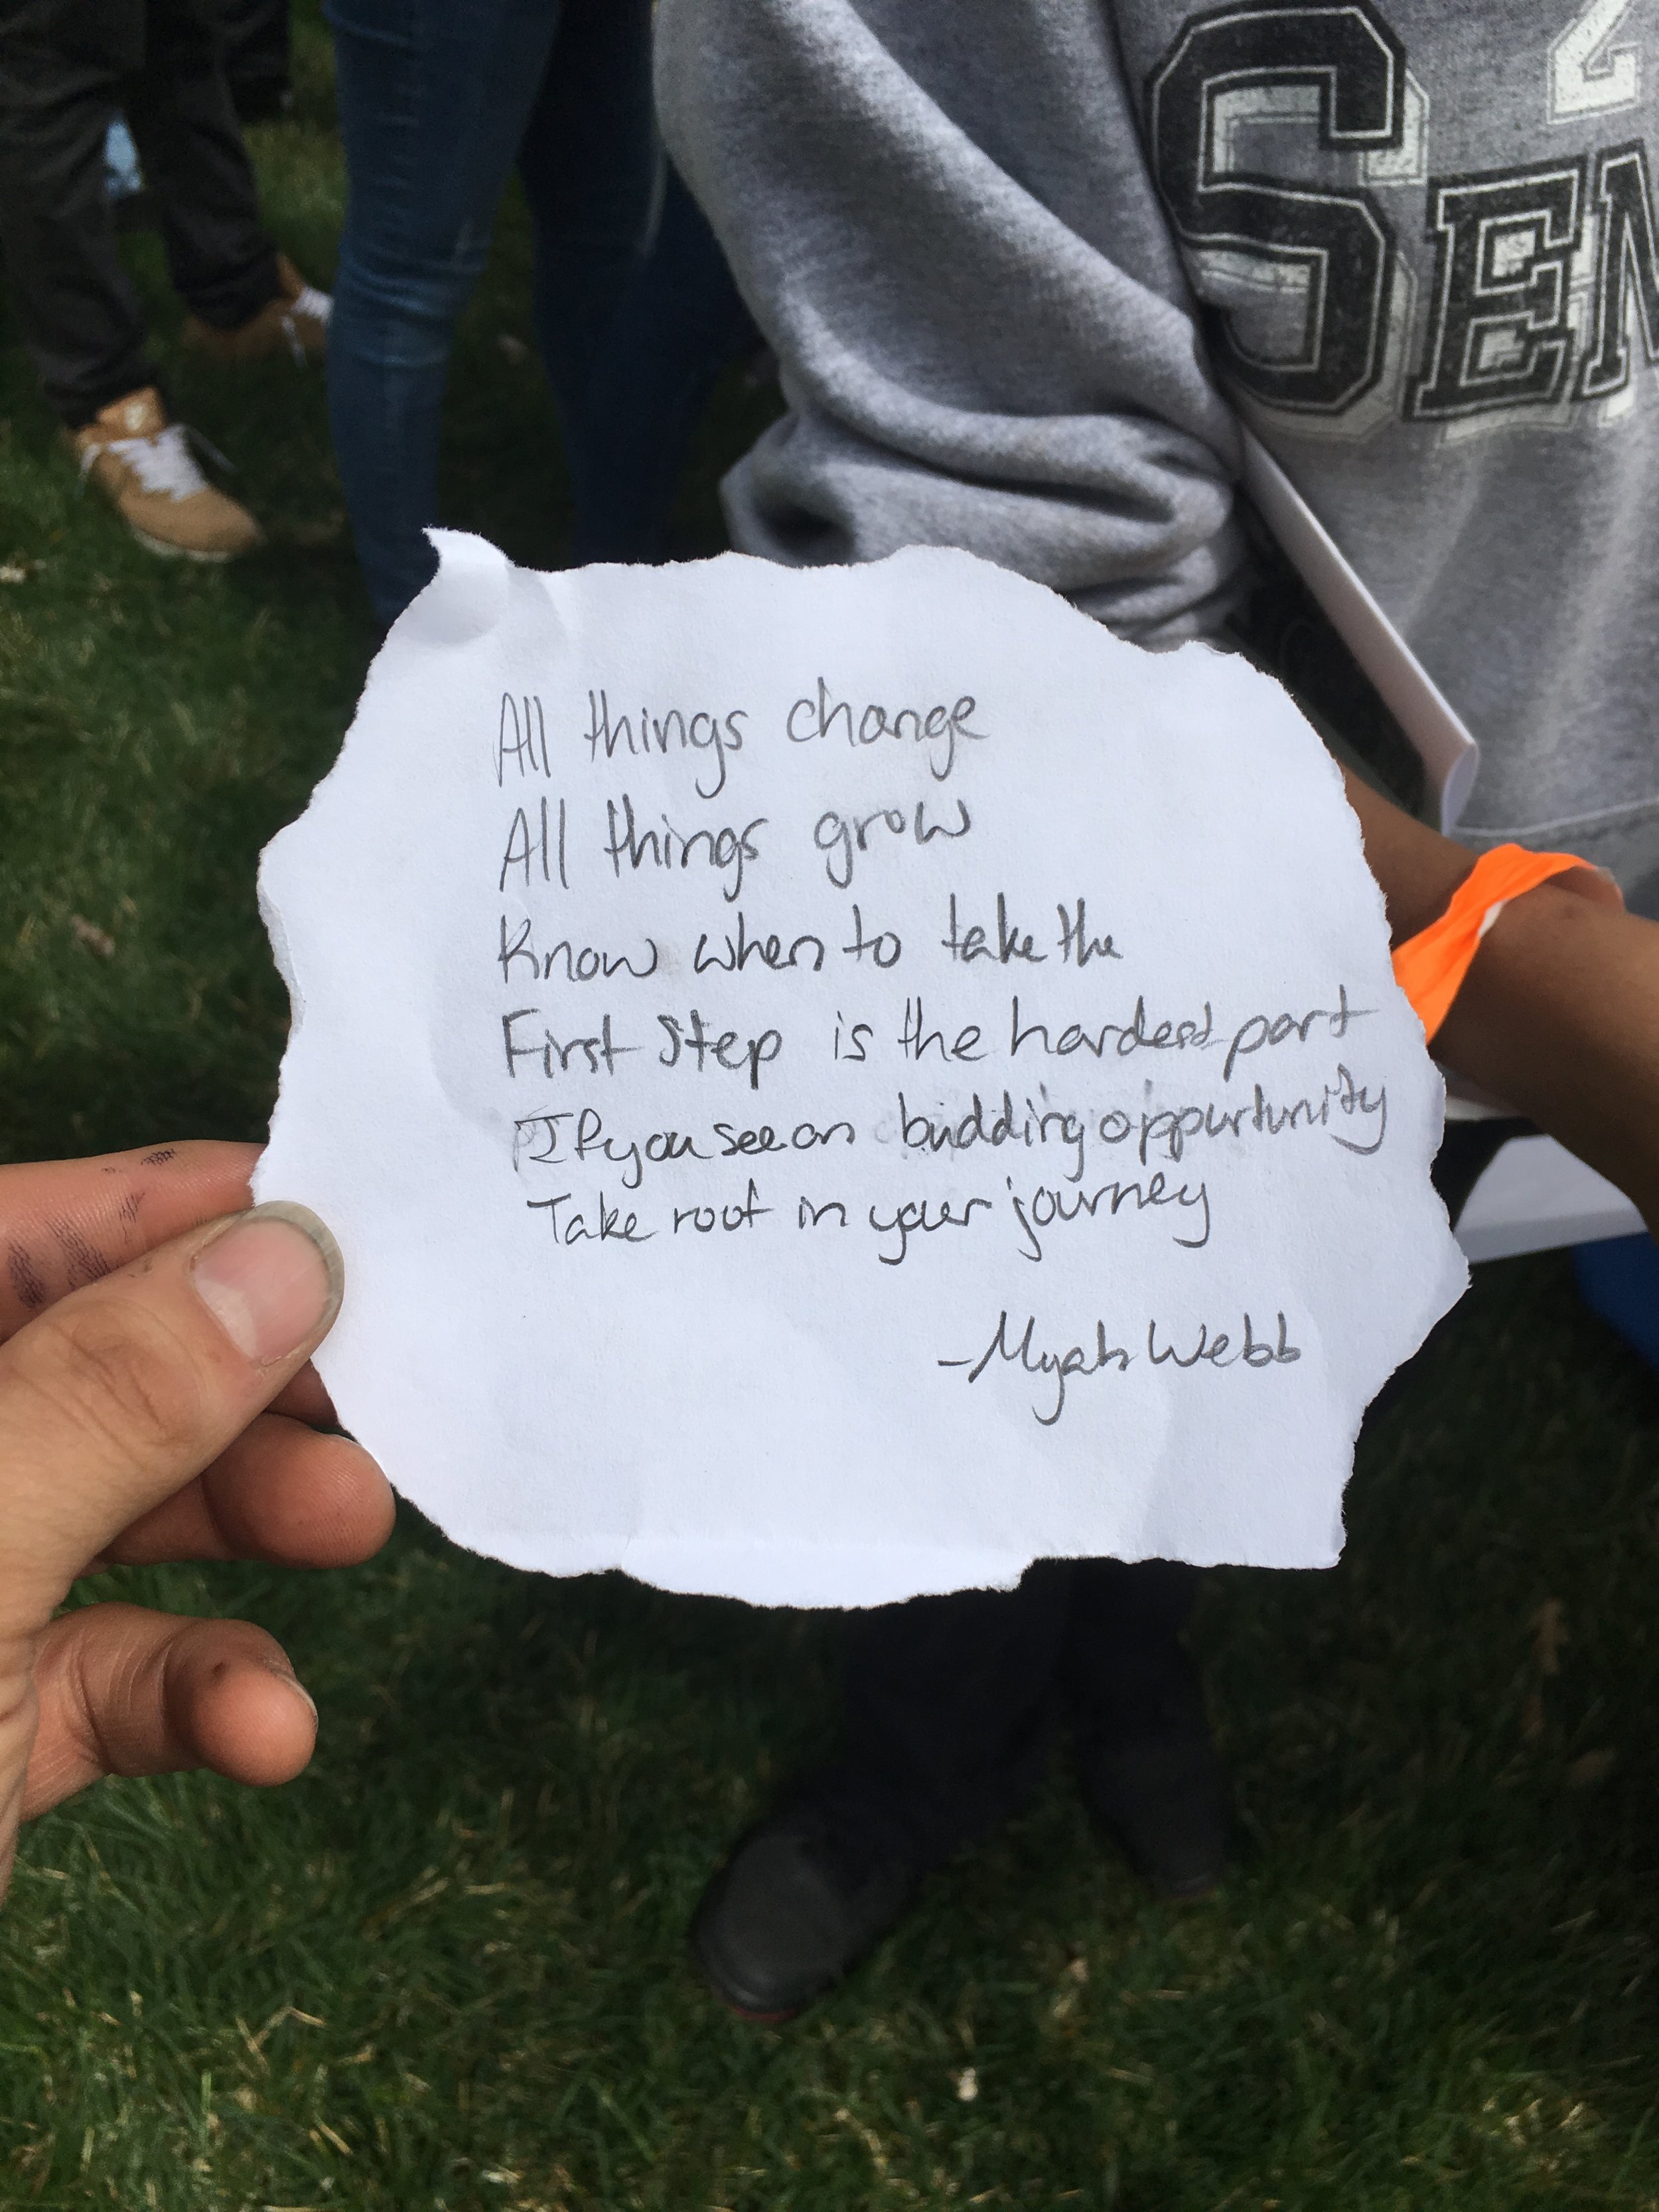 2
SEN
All things change
All things grow
Know when to take the
First Step is the hardest part
If you see an budding oppurtunity
Take root in your journey
-Myah Webb